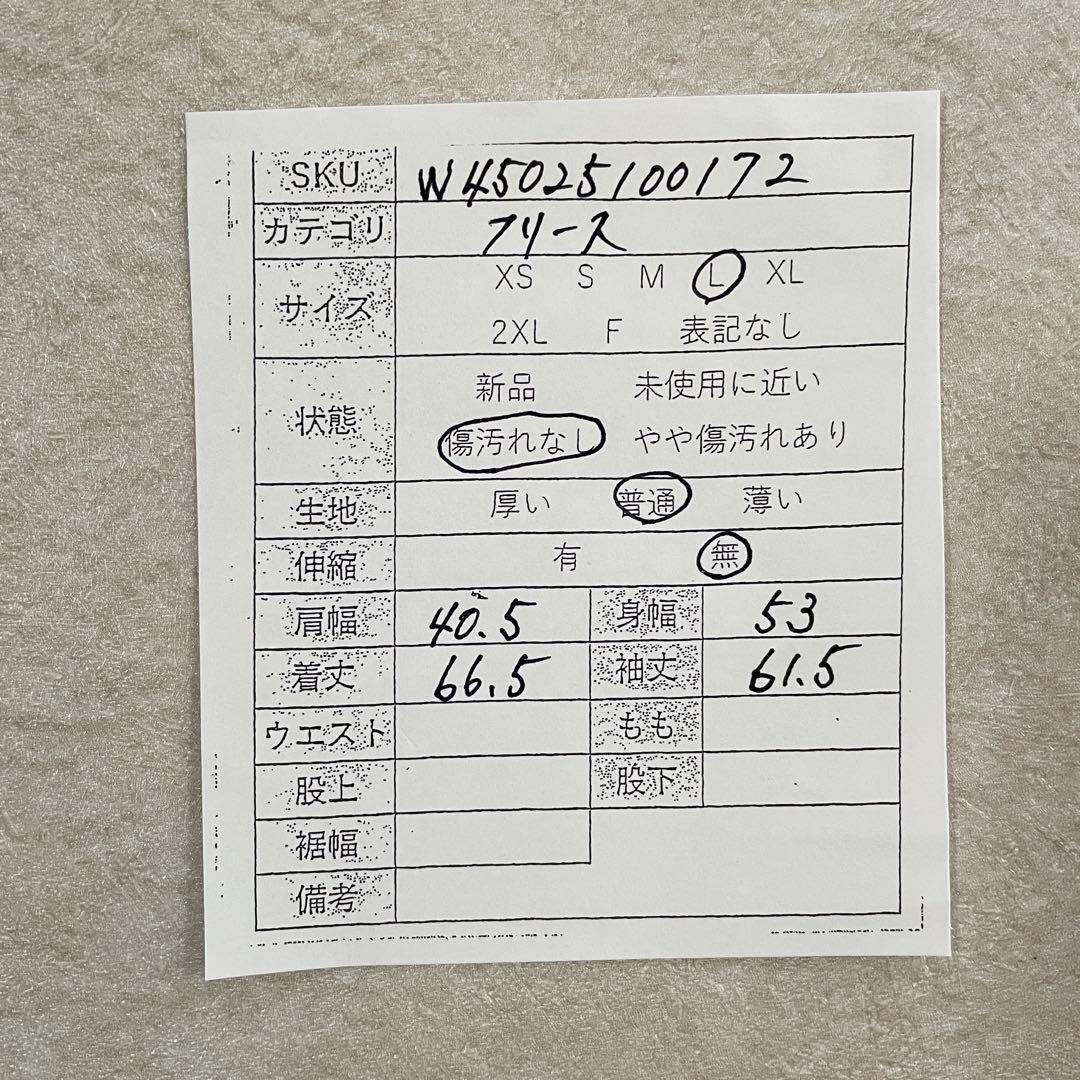 SKU W45025100172
カテゴリ フリース
サイズ XS S M L XL
2XL F 表記なし
状態 新品 未使用に近い
傷汚れなし やや傷汚れあり
生地 厚い 普通 薄い
伸縮 有 無
肩幅 40.5 身幅 53
着丈 66.5 袖丈 61.5
ウエスト もも
股上 股下
裾幅
備考